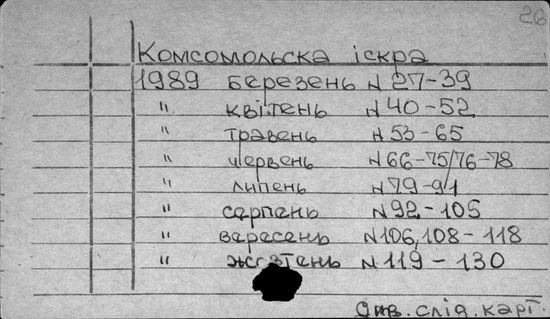 26
Комсомольска іскра
1989 березень N 27-39
" квітень N 40-52
" травень N 53-65
" червень N 66-75/76-78
" липень N 79-91
" серпень N 92-105
" вересень N 106, 108-118
" жовтень N 119-130
Див. слід. карт.